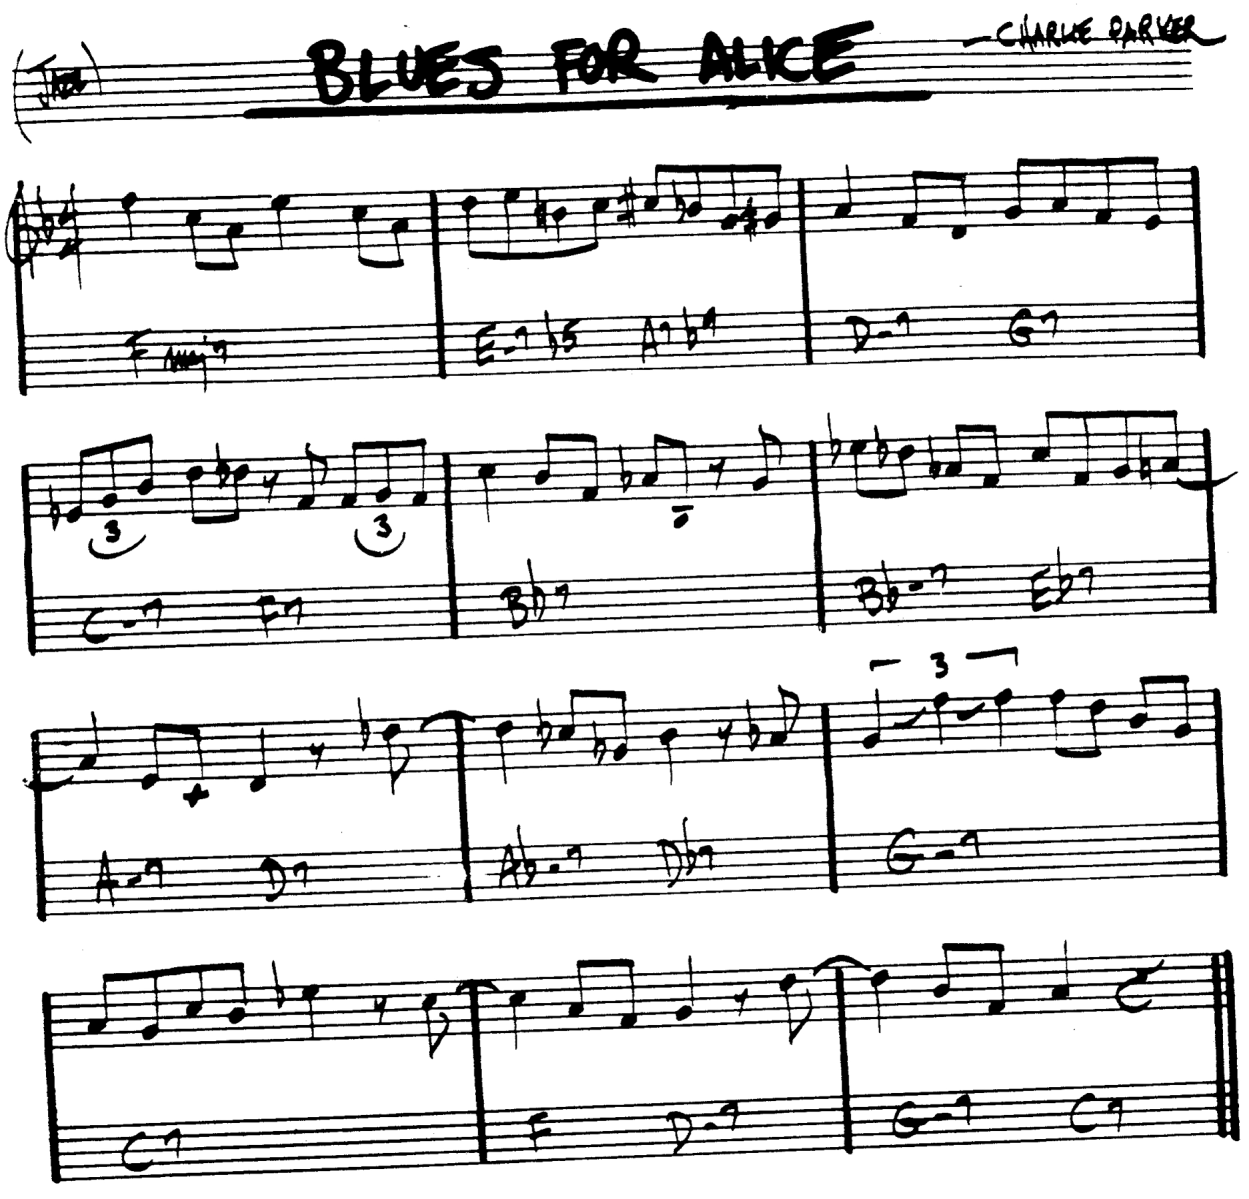 (JAZZ) BLUES FOR ALICE - CHARLIE PARKER
Fmaj7 E-7 b5 A7 b9 D-7 G7
3 3
C-7 F7 Bb7 Bb-7 Eb7
3
A-7 D7 Ab-7 Db7 G-7
C7 F D-7 G-7 C7